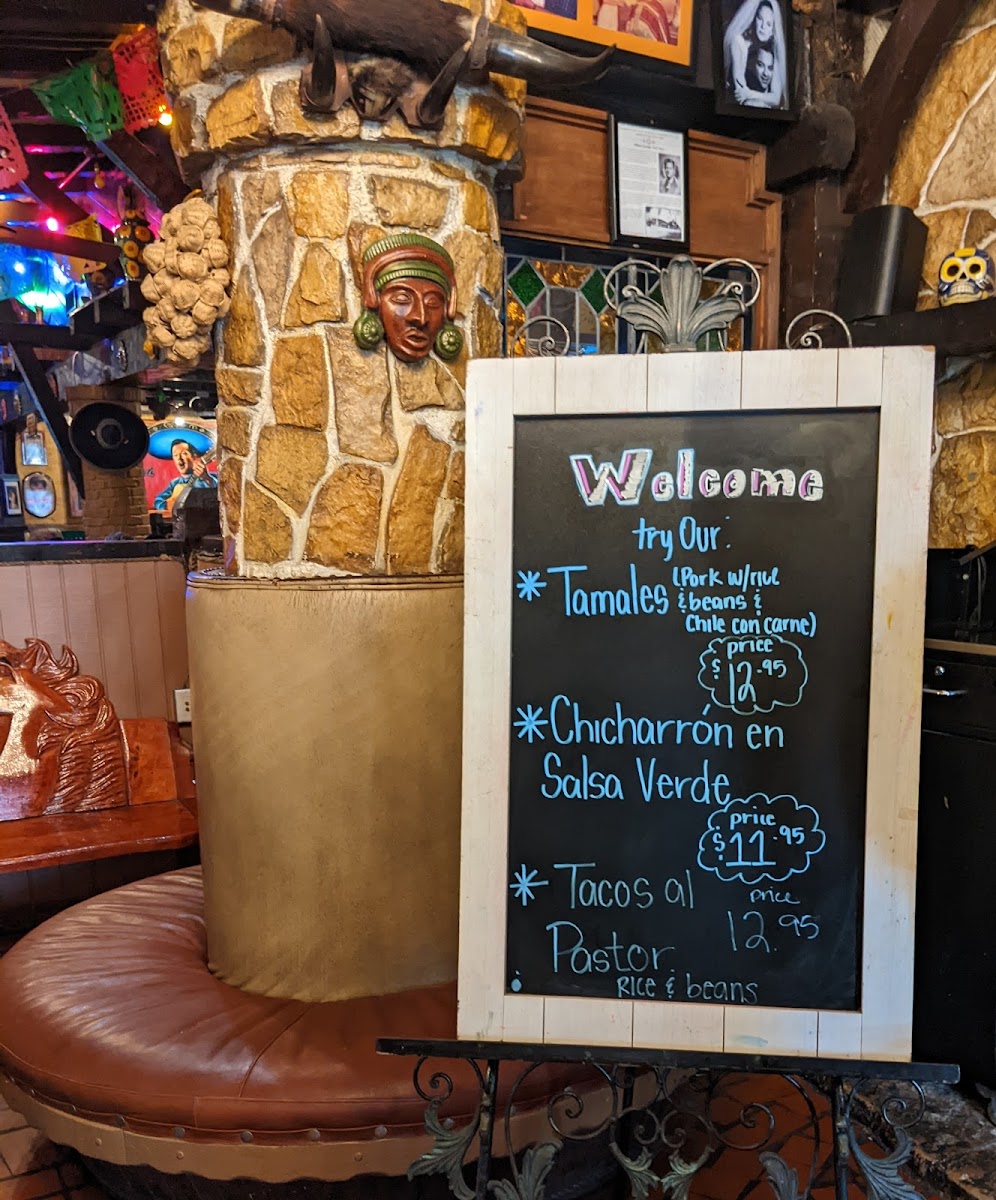 Welcome
try Our:
* Tamales (Pork w/rice
& beans &
Chile con carne)
price
$12.95
* Chicharrón en
Salsa Verde
price
$11.95
* Tacos al
Pastor
price
12.95
RICE & beans